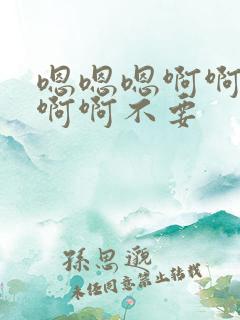 嗯嗯嗯啊啊
啊啊不要
孫思邈
未经同意禁止转载